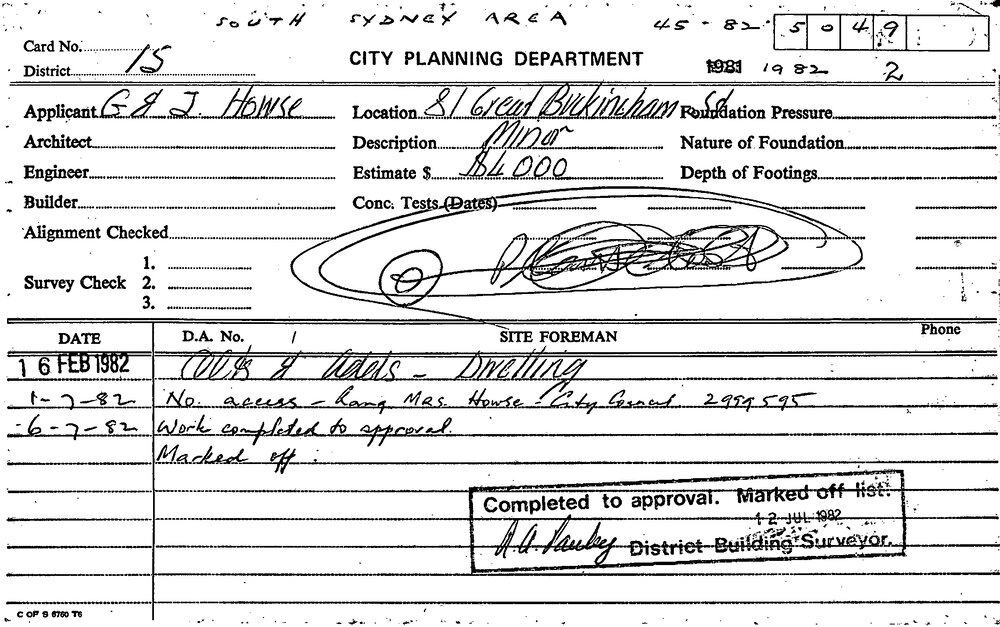 SOUTH SYDNEY AREA 45-82 5049
Card No.
District 15
CITY PLANNING DEPARTMENT
1981 1982 2
Applicant G & J. Howse Location 81 Great Buckingham St Foundation Pressure
Architect Description Minor Nature of Foundation
Engineer Estimate $ $4000 Depth of Footings
Builder Conc. Tests (Dates)
Alignment Checked
Survey Check 1.
2.
3.
DATE D.A. No. SITE FOREMAN Phone
16 FEB 1982 & Adds - Dwelling
1-7-82 No access - Rang Mrs. Howse - City Council 2999595
6-7-82 Work completed to approval.
Marked off.
Completed to approval. Marked off list.
12 JUL 1982
District Building Surveyor.
C OF S 6760 T6